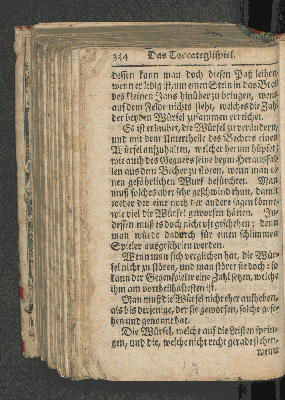 344 Das Toccateglispiel.
dessen kann man doch diesen Paß leihen,
wenn er ledig ist, um einen Stein in das Bret
des kleinen Jans hinüber zu bringen, wenn
auf dem Felde nichts steht, welches die Zahl
der beyden Würfel zusammen errichet.
Es ist erlaubet, die Würfel zu verändern,
und mit dem Untertheile des Bechers einen
Würfel aufzuhalten, welcher herum hüpfet,
wie auch des Gegners seine beym Herausfal-
len aus dem Becher zu stören, wenn man ei-
nen gefährlichen Wurf befürchtet. Man
muß solches aber sehr geschwind thun, damit
weder der eine noch der andere sagen könne,
wie viel die Würfel geworfen hätten. In-
dessen muß es doch nicht oft geschehen; denn
man würde dadurch für einen schlimmen
Spieler ausgeschrien werden.
Wenn man sich verglichen hat, die Wür-
fel nicht zu stören, und man störet sie doch: so
kann der Gegenspieler eine Zahl setzen, welche
ihm am vortheilhaftesten ist.
Man muß die Würfel nicht eher aufheben,
als bis derjenige, der sie geworfen, solche gese-
hen und genannt hat.
Die Würfel, welche auf die Leisten sprin-
gen, und die, welche nicht recht gerade stehen,
wenn